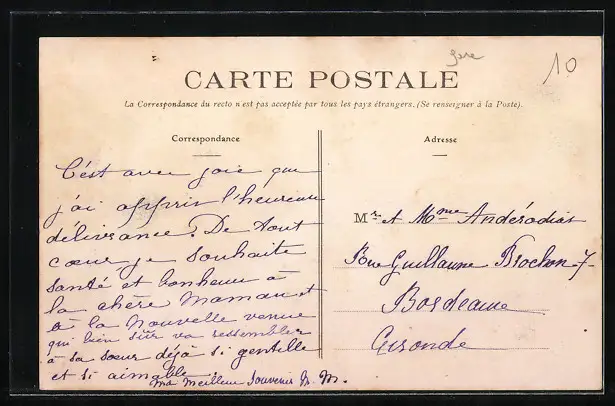 Gare
10
CARTE POSTALE
La Correspondance du recto n'est pas acceptée par tous les pays étrangers. (Se renseigner à la Poste).
Correspondance
Adresse
C'est avec joie que
j'ai appris l'heureuse
délivrance. De tout
cœur je souhaite
santé et bonheur à
la chère Maman et
à la nouvelle venue
qui bien sûr va ressembler
à sa sœur déjà si gentille
et si aimable.
Ma meilleur souvenir M.
Mr et Mme
Rue Guillaume Brochon 7
Bordeaux
Gironde